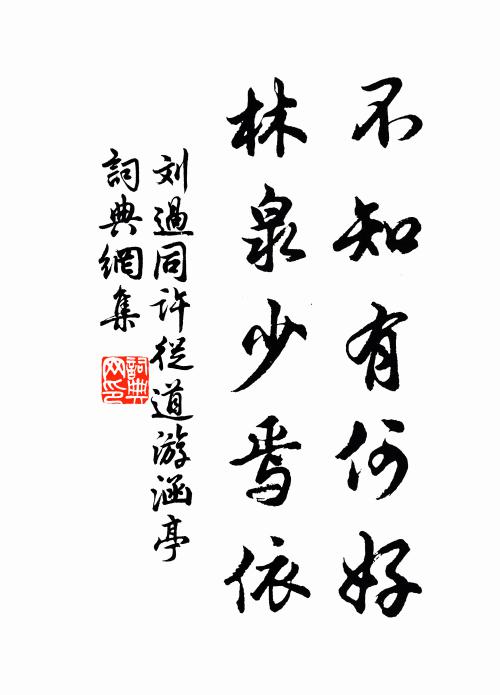 不知有何好
林泉少焉依
刘過同許從道游涵亭
詞典網集
詞典网印